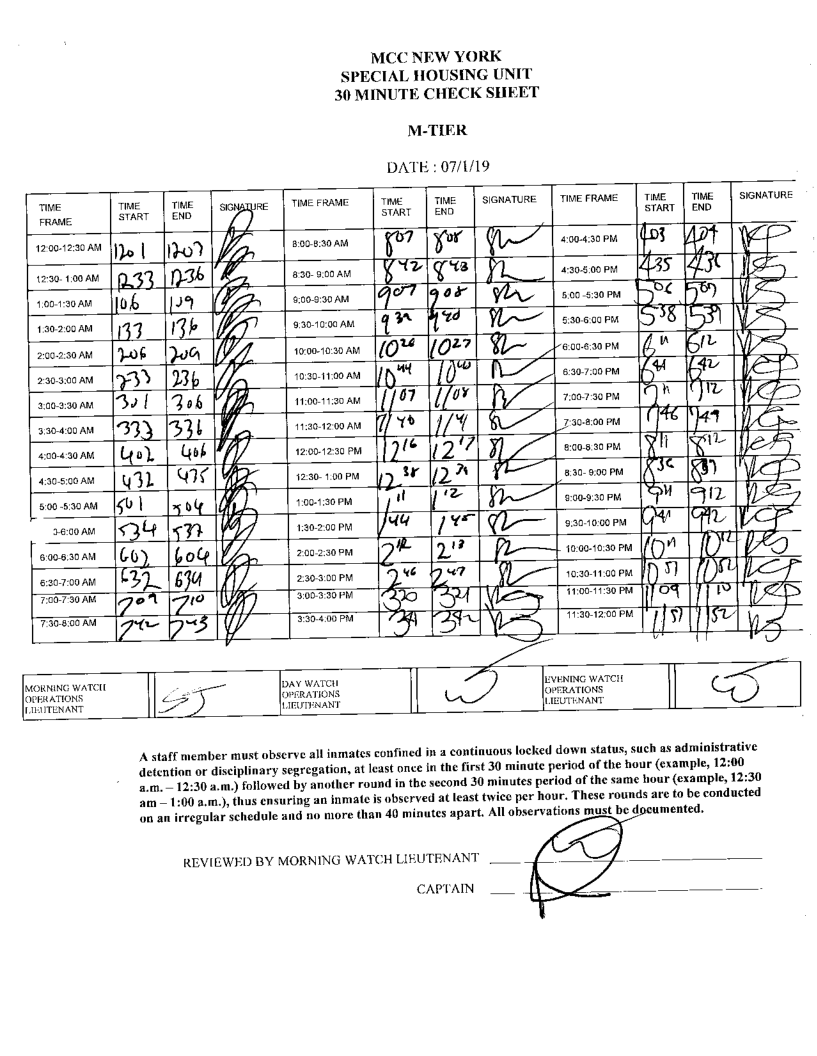 MCC NEW YORK
SPECIAL HOUSING UNIT
30 MINUTE CHECK SHEET
M-TIER
DATE : 07/1/19
TIME FRAME TIME START TIME END SIGNATURE TIME FRAME TIME START TIME END SIGNATURE TIME FRAME TIME START TIME END SIGNATURE
12:00-12:30 AM 1201 1203 8:00-8:30 AM 807 808 4:00-4:30 PM 403 404
12:30- 1:00 AM 1233 1236 8:30- 9:00 AM 842 843 4:30-5:00 PM 435 436
1:00-1:30 AM 106 109 9:00-9:30 AM 907 908 5:00 -5:30 PM 506 507
1:30-2:00 AM 133 136 9:30-10:00 AM 939 940 5:30-6:00 PM 538 539
2:00-2:30 AM 206 209 10:00-10:30 AM 1026 1027 6:00-6:30 PM 611 612
2:30-3:00 AM 233 236 10:30-11:00 AM 1044 6:30-7:00 PM 641 642
3:00-3:30 AM 301 306 11:00-11:30 AM 1107 1108 7:00-7:30 PM 711 712
3:30-4:00 AM 333 336 11:30-12:00 PM 1140 1141 7:30-8:00 PM 746 749
4:00-4:30 AM 402 406 12:00-12:30 PM 1216 1217 8:00-8:30 PM 811 812
4:30-5:00 AM 432 435 12:30- 1:00 PM 1238 1239 8:30- 9:00 PM 836 837
5:00 -5:30 AM 501 504 1:00-1:30 PM 111 112 9:00-9:30 PM 911 912
0-6:00 AM 534 537 1:30-2:00 PM 144 145 9:30-10:00 PM 941 942
6:00-6:30 AM 602 604 2:00-2:30 PM 212 213 10:00-10:30 PM 1011 1012
6:30-7:00 AM 632 634 2:30-3:00 PM 246 247 10:30-11:00 PM 1051 1052
7:00-7:30 AM 709 710 3:00-3:30 PM 320 321 11:00-11:30 PM 1109 1110
7:30-8:00 AM 742 743 3:30-4:00 PM 341 342 11:30-12:00 PM 1151 1152
MORNING WATCH OPERATIONS LIEUTENANT DAY WATCH OPERATIONS LIEUTENANT EVENING WATCH OPERATIONS LIEUTENANT
A staff member must observe all inmates confined in a continuous locked down status, such as administrative
detention or disciplinary segregation, at least once in the first 30 minute period of the hour (example, 12:00
a.m. – 12:30 a.m.) followed by another round in the second 30 minutes period of the same hour (example, 12:30
am – 1:00 a.m.), thus ensuring an inmate is observed at least twice per hour. These rounds are to be conducted
on an irregular schedule and no more than 40 minutes apart. All observations must be documented.
REVIEWED BY MORNING WATCH LIEUTENANT
CAPTAIN